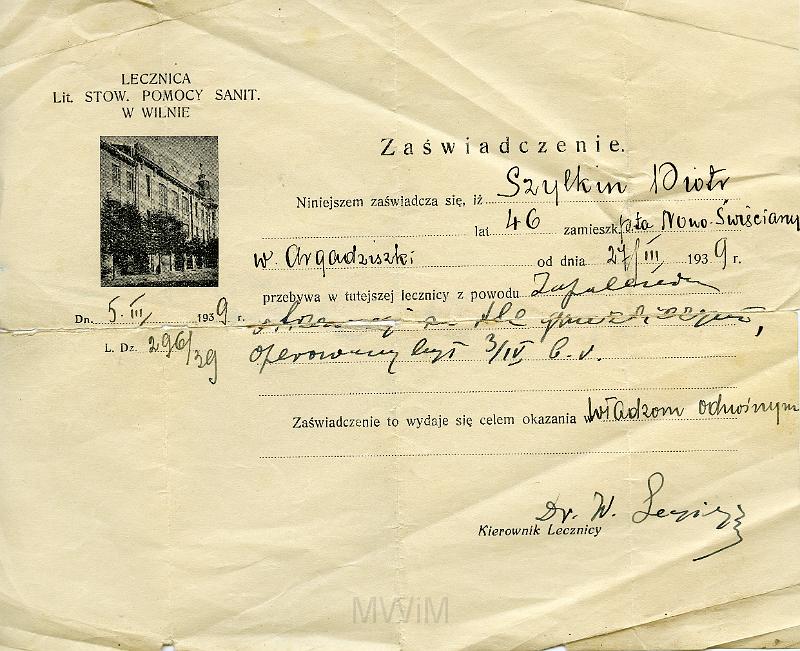 LECZNICA
Lit. STOW. POMOCY SANIT.
W WILNIE
Zaświadczenie.
Niniejszem zaświadcza się, iż Szyłkin Piotr
lat 46 zamieszk. p-ta Nowo-Święciany
w. Argadziszki od dnia 27/III 1939 r.
przebywa w tutejszej lecznicy z powodu Zapalenia
Dn. 5. III 1939 r.
na tle
L. Dz. 296/39
operowany był 3/IV b.r.
Zaświadczenie to wydaje się celem okazania władzom odnośnym
Dr. W.
Kierownik Lecznicy
MWiM